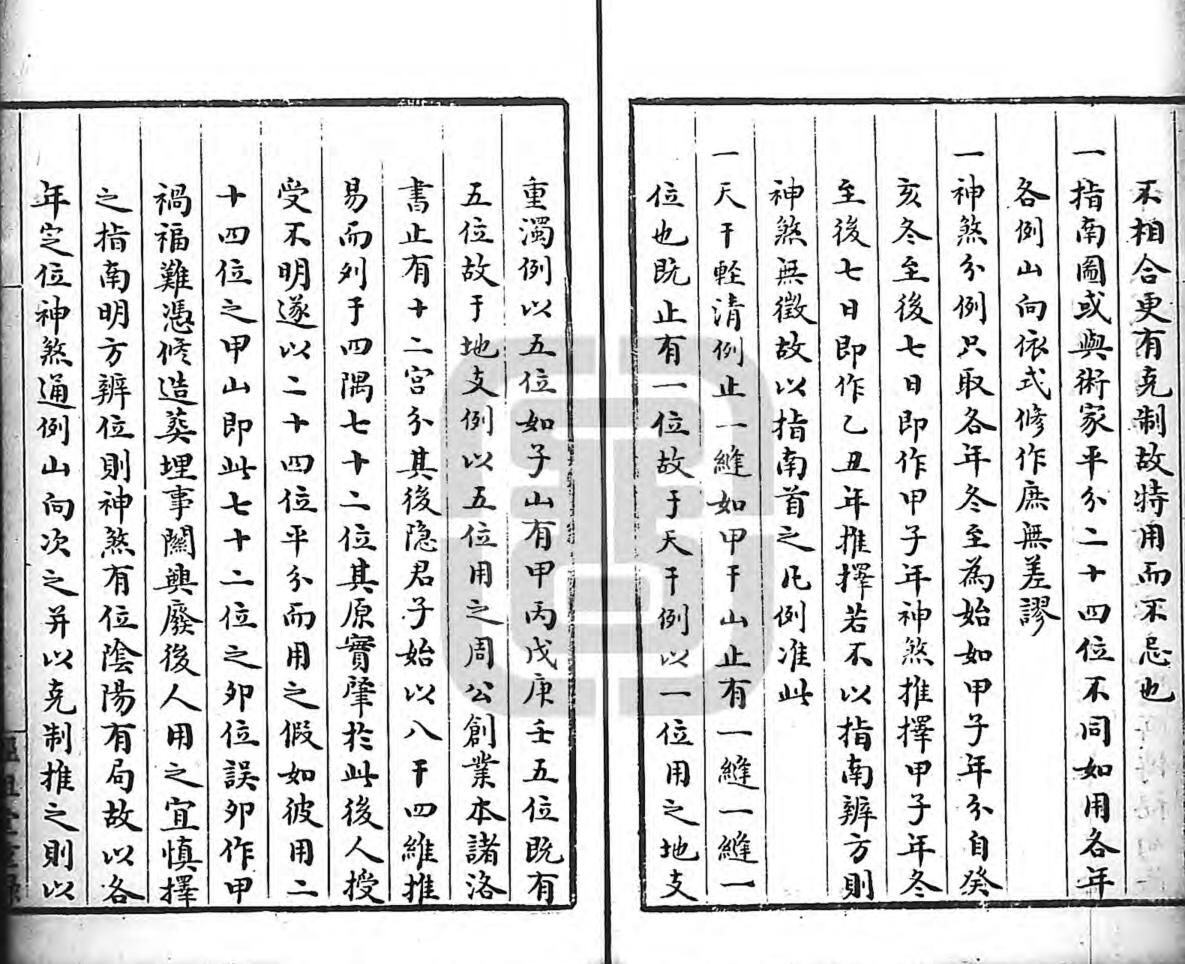 不相合更有克制故特用而不忌也
一指南圖或與術家平分二十四位不同如用各年
各例山向依式修作庶無差謬
一神煞分例只取各年冬至為始如甲子年分自癸
亥冬至後七日即作甲子年神煞推擇甲子年冬
至後七日即作乙丑年推擇若不以指南辨方則
神煞無徵故以指南首之凡例准此
一天干輕清例止一縫如甲干山止有一縫一縫一
位也既止有一位故于天干例以一位用之地支
重濁例以五位如子山有甲丙戊庚壬五位既有
五位故于地支例以五位用之周公創業本諸洛
書止有十二宮分其後隐君子始以八干四維推
易而列于四隅七十二位其原實肇於此後人授
受不明遂以二十四位平分而用之假如彼用二
十四位之甲山即此七十二位之卯位誤卯作甲
禍福難憑修造葬埋事關興廢後人用之宜慎擇
之指南明方辨位則神煞有位陰陽有局故以各
年定位神煞通例山向次之并以克制推之則以